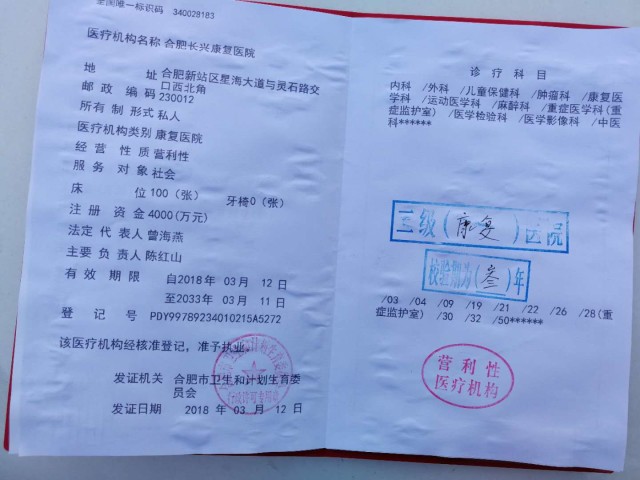 全国唯一标识码 340029183
医疗机构名称 合肥长兴康复医院
地 址 合肥新站区星海大道与灵石路交
口西北角
邮 政 编 码 230012
所 有 制 形 式 私人
医疗机构类别 康复医院
经 营 性 质 营利性
服 务 对 象 社会
床 位 100 (张) 牙椅0 (张)
注 册 资 金 4000(万元)
法定 代 表人 曾海燕
主要 负 责人 陈红山
有 效 期 限 自2018 年 03 月 12 日
至2033 年 03 月 11 日
登 记 号 PDY99789234010215A5272
该医疗机构经核准登记，准予执业。
发证机关 合肥市卫生和计划生育委
员会
发证日期 2018 年 03 月 12 日
诊 疗 科 目
内科 /外科 /儿童保健科 /肿瘤科 /康复医
学科 /运动医学科 /麻醉科 /重症医学科(重
症监护室) /医学检验科 /医学影像科 /中医
科******
三级（康复）医院
校验期为（叁）年
/03 /04 /09 /19 /21 /22 /26 /28(重
症监护室) /30 /32 /50******
营利性
医疗机构